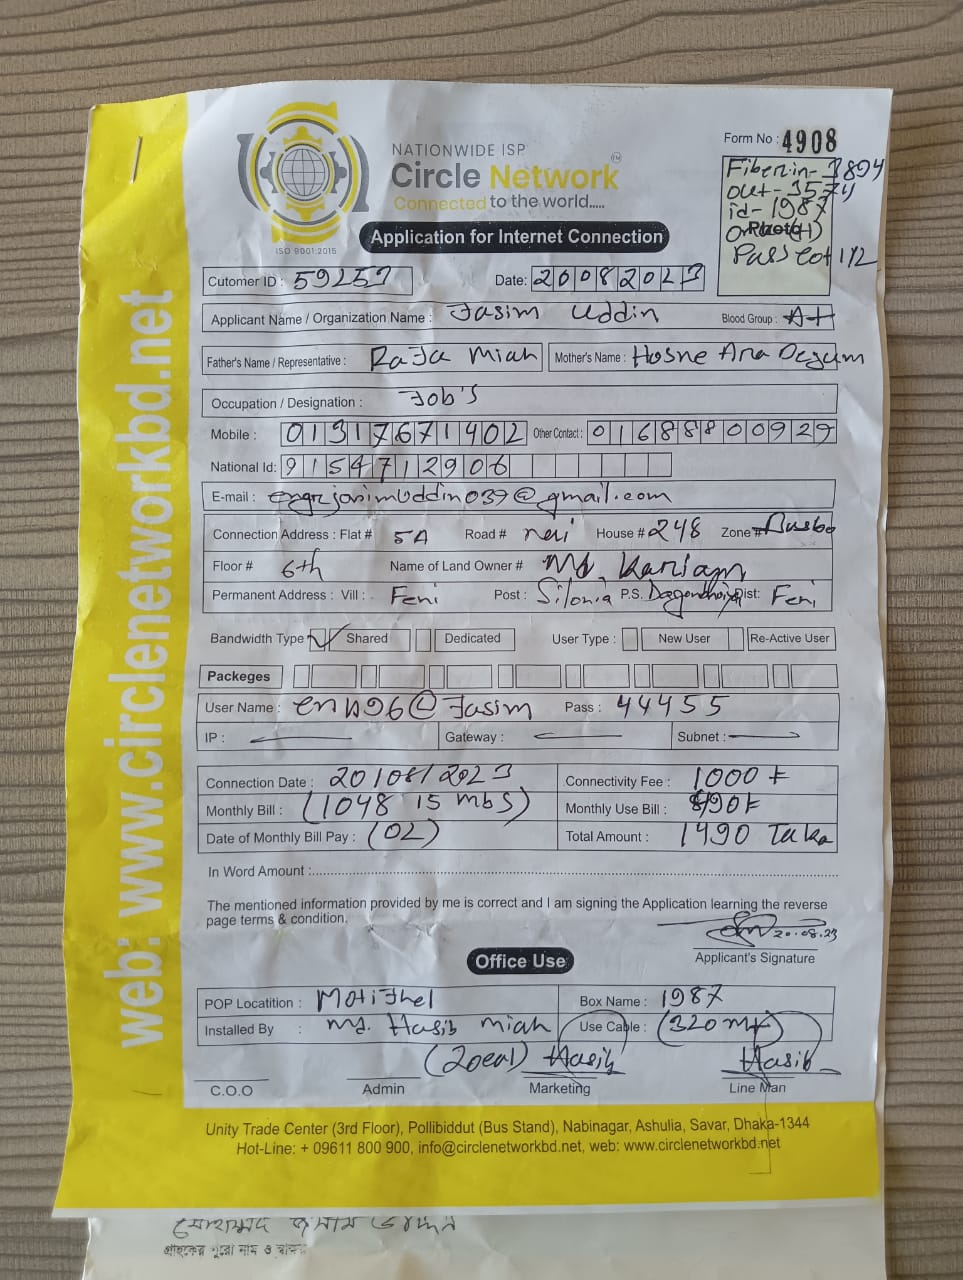 NATIONWIDE ISP
Circle Network
Connected to the world.....
ISO 9001:2015
Form No : 4908
Fiber in- 3894
out- 3574
id- 1987
Photo
Application for Internet Connection
Cutomer ID : 59257
Date: 20082023
Applicant Name / Organization Name : Jasim Uddin Blood Group : A+
Father's Name / Representative : RaJa Miah Mother's Name : Hosne Ara Begum
Occupation / Designation : Job's
Mobile : 01317671402 Other Contact : 01688800929
National Id: 9154712906
E-mail : engrjasimuddin039@gmail.com
Connection Address : Flat # 5A Road # House # 248 Zone #
Floor # 6th Name of Land Owner # Md.
Permanent Address : Vill : Feni Post : Silonia P.S. Dist: Feni
Bandwidth Type Shared Dedicated User Type : New User Re-Active User
Packeges
User Name : @Jasim Pass : 44455
IP : Gateway : Subnet :
Connection Date : 20/08/2023 Connectivity Fee : 1000
Monthly Bill : (1048 15 mbs) Monthly Use Bill :
Date of Monthly Bill Pay : (02) Total Amount : 1490 Taka
In Word Amount :
The mentioned information provided by me is correct and I am signing the Application learning the reverse
page terms & condition.
20.08.23
Applicant's Signature
Office Use
POP Locatition : MotiJhel Box Name : 1987
Installed By : Md. Hasib Miah Use Cable : (320 mt)
Hasib Hasib
C.O.O Admin Marketing Line Man
Unity Trade Center (3rd Floor), Pollibiddut (Bus Stand), Nabinagar, Ashulia, Savar, Dhaka-1344
Hot-Line: + 09611 800 900, info@circlenetworkbd.net, web: www.circlenetworkbd.net
web: www.circlenetworkbd.net
গ্রাহকের পুরো নাম ও